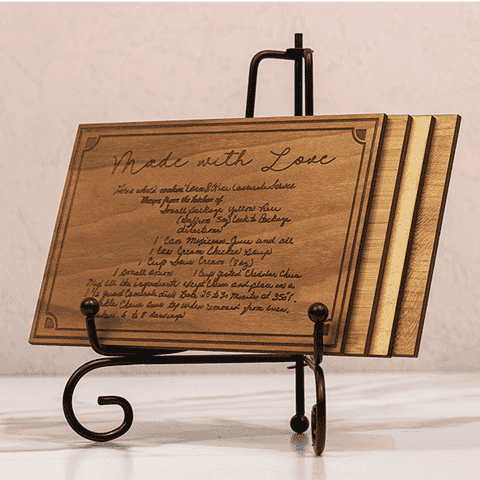 Made with Love
Here's what's cookin' Corn & Rice Casserole Serves
Recipe from the kitchen of
Small package Yellow Rice
(Saffron 5oz) Cook to Package
directions
1 Can Mexicorn Juice and all
1 Can Cream Chicken Soup
1 Cup Sour Cream (8oz)
1 Small onion 1 Cup grated Cheddar Cheese
Mix all the ingredients except Cheese and place in a
greased Casserole dish Bake 25 to 30 minutes at 350°.
Cheese over top when removed from oven.
6 to 8 Servings